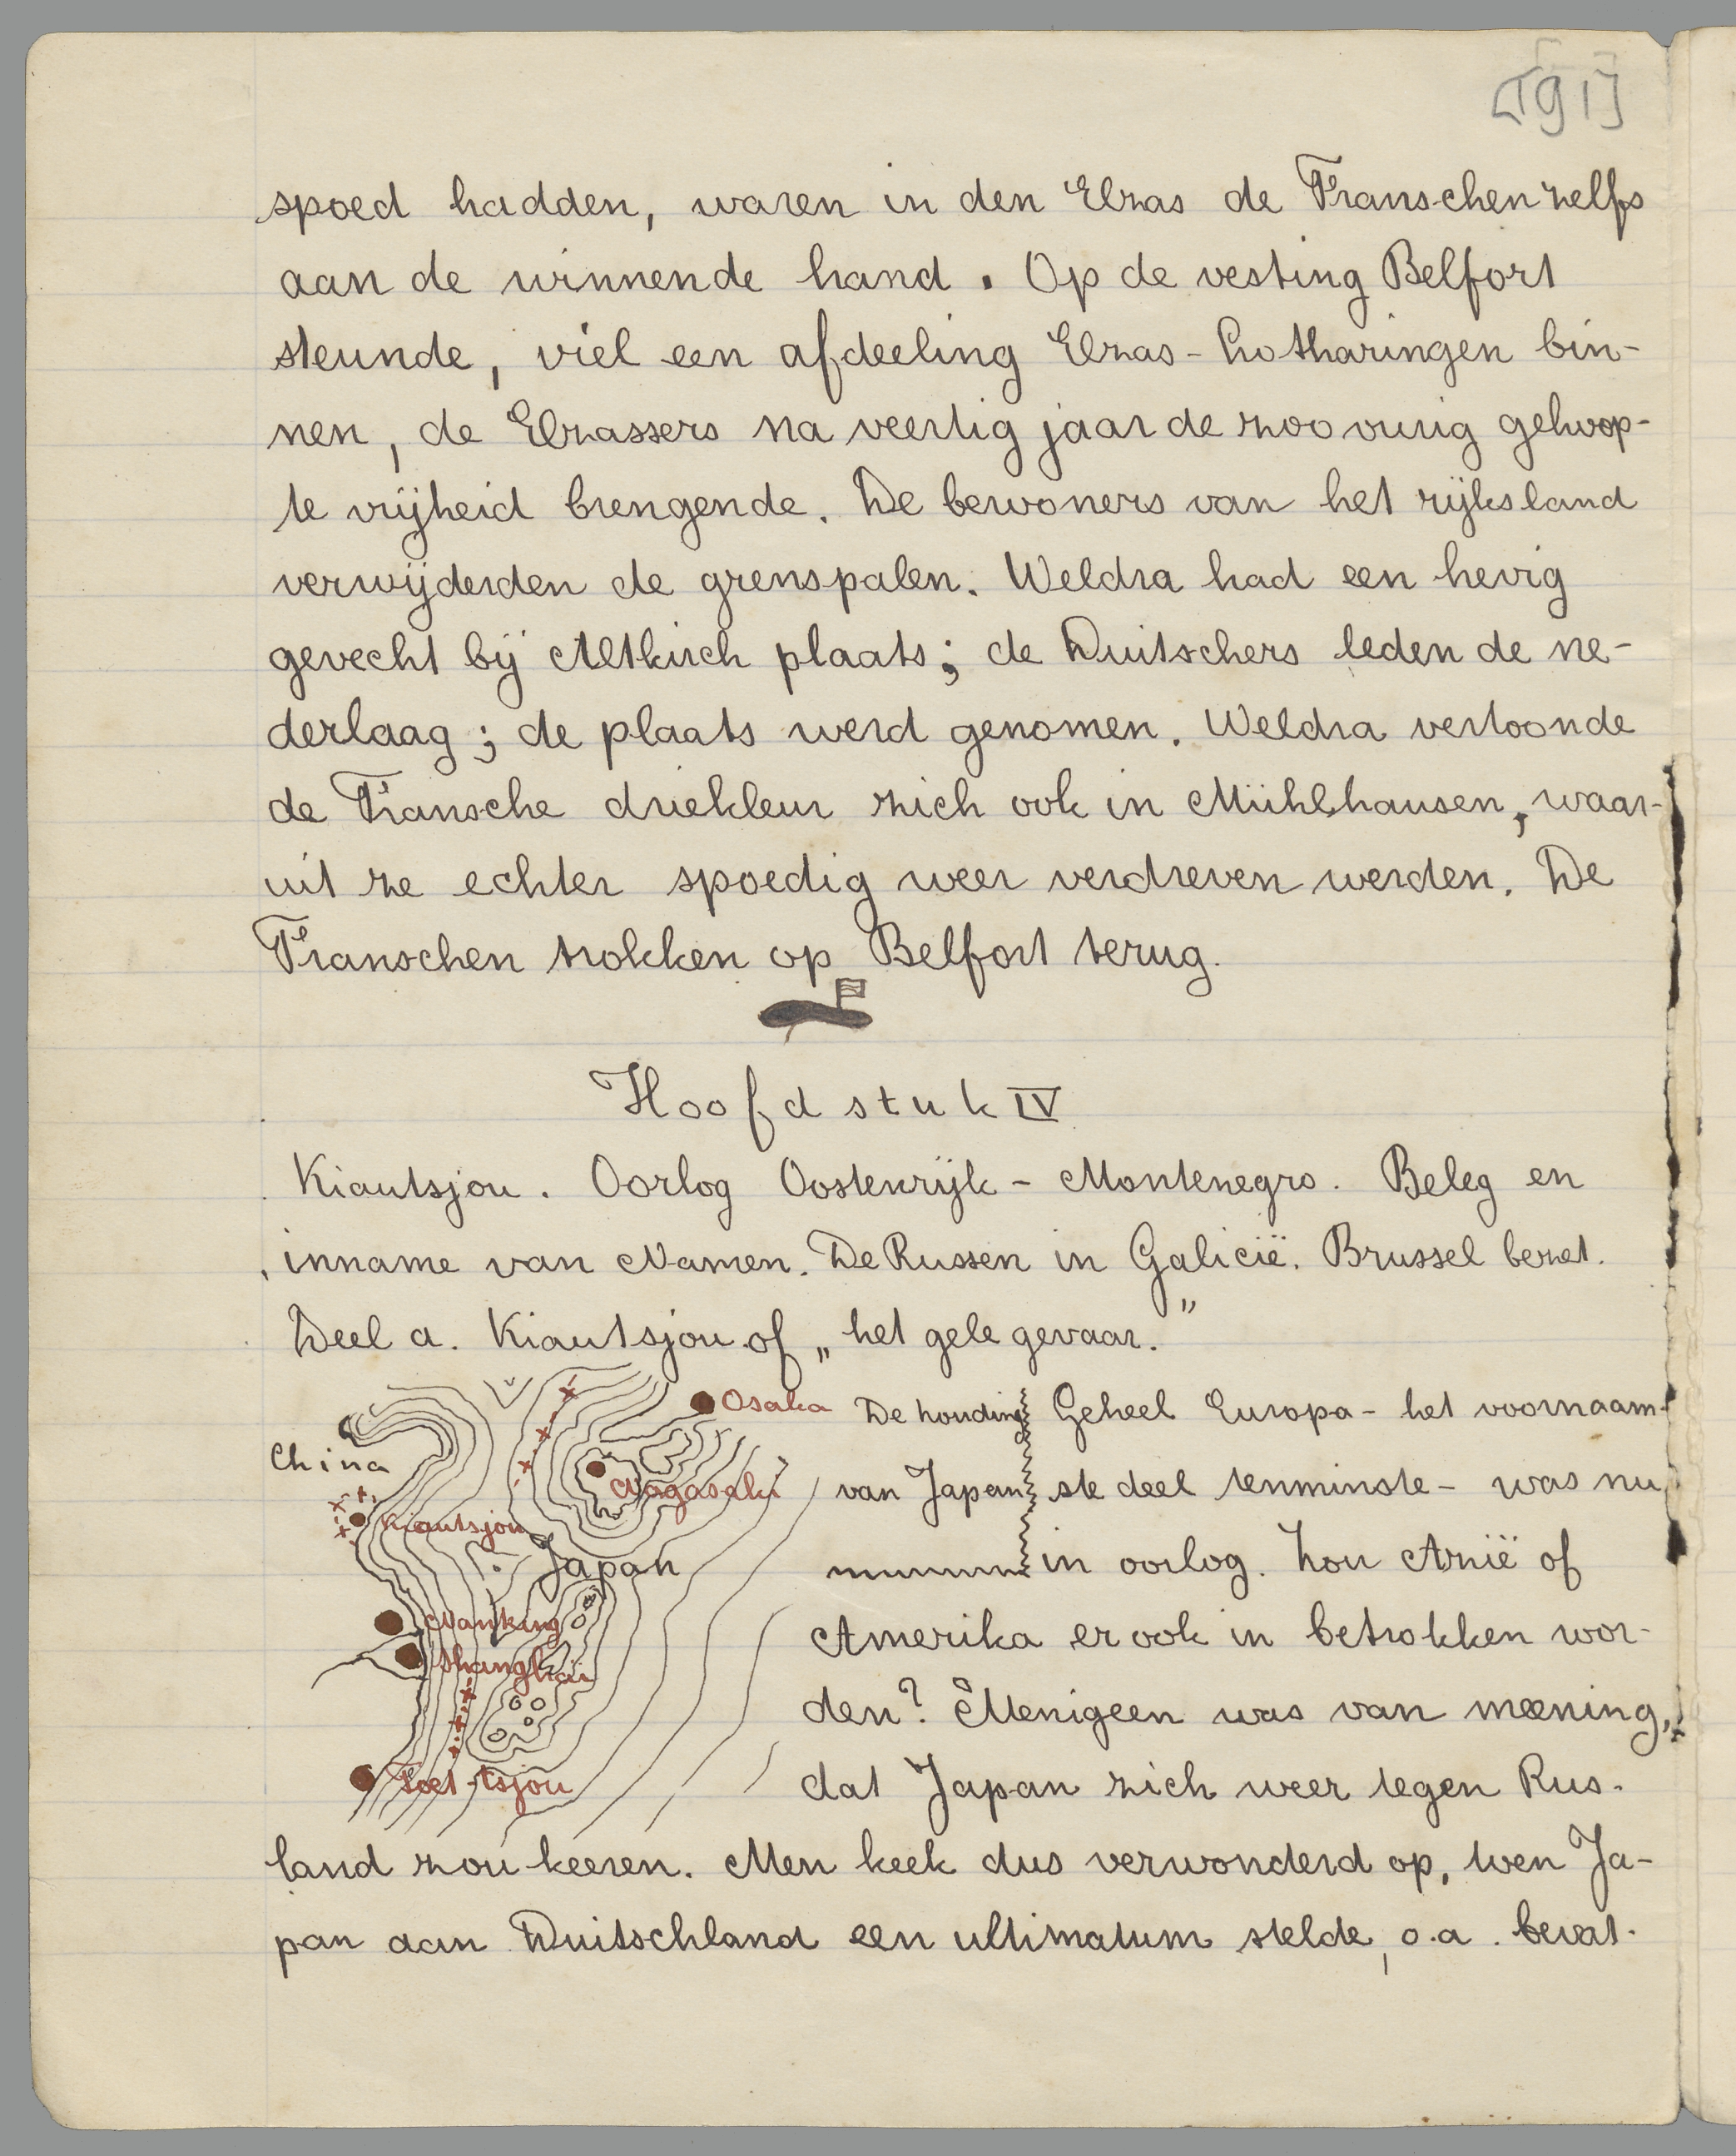 [91]
spoed hadden, waren in den Elzas de Franschen zelfs
aan de winnende hand. Op de vesting Belfort
steunde, viel een afdeeling Elzas-Lotharingen bin-
nen, de Elzassers na veertig jaar de zoo vurig gehoop-
te vrijheid brengende. De bewoners van het rijksland
verwijderden de grenspalen. Weldra had een hevig
gevecht bij Altkirch plaats; de Duitschers leden de ne-
derlaag; de plaats werd genomen. Weldra vertoonde
de Fransche driekleur zich ook in Mühlhausen, waar-
uit ze echter spoedig weer verdreven werden. De
Franschen trokken op Belfort terug.
Hoofdstuk IV
Kiautsjou. Oorlog Oostenrijk - Montenegro. Beleg en
inname van Namen. De Russen in Galicië. Brussel bezet.
Deel a. Kiautsjou of „het gele gevaar."
De houding
van Japan
Geheel Europa - het voornaam-
ste deel tenminste - was nu
in oorlog. Zou Azië of
Amerika er ook in betrokken wor-
den? Menigeen was van meening,
dat Japan zich weer tegen Rus-
land zou keeren. Men keek dus verwonderd op, toen Ja-
pan aan Duitschland een ultimatum stelde, o.a. bevat-
Osaka
China
Nagasaki
Kiautsjou
Japan
Nanking
Shanghai
Foet-tsjou